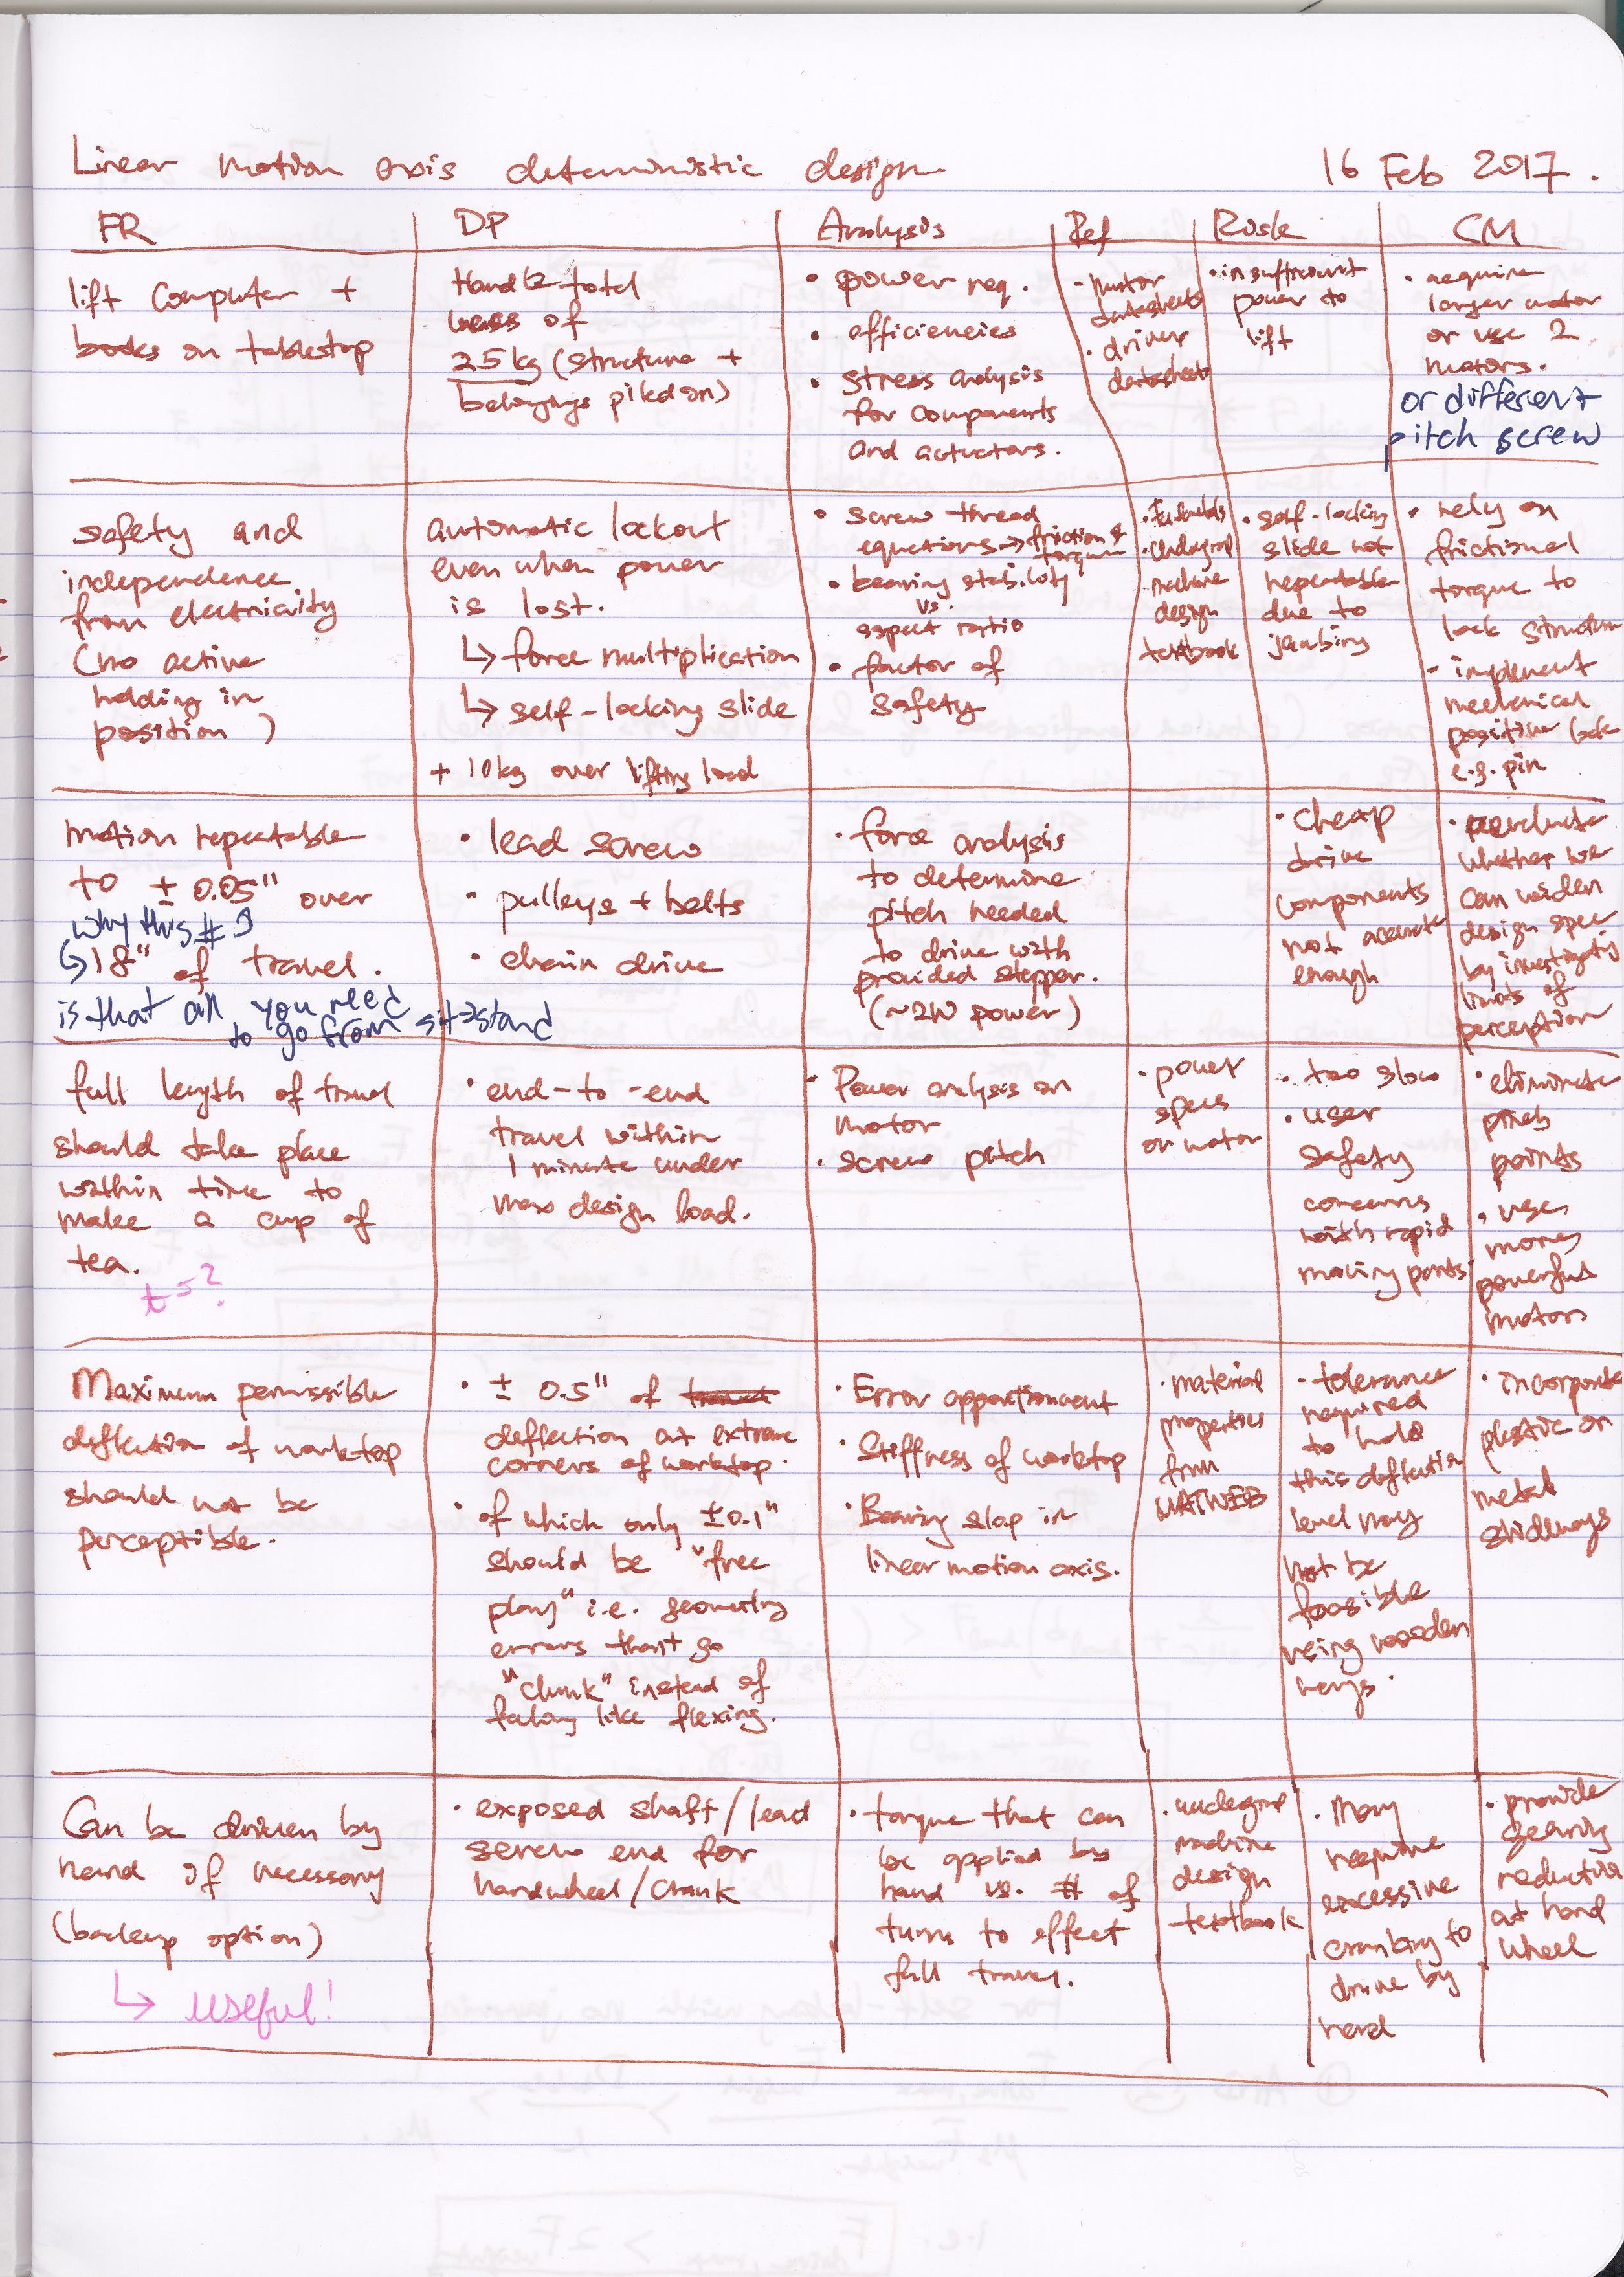 Linear motion axis deterministic design
16 Feb 2017.
FR
DP
Analysis
Ref
Risk
CM
lift computer +
books on tabletop
Handle total
mass of
25kg (structure +
belongings piled on)
• power req.
• efficiencies
• stress analysis
for components
and actuators.
• motor
datasheets
• driver
datasheets
• insufficient
power to
lift
• acquire
larger motor
or use 2
motors.
or different
pitch screw
safety and
independence
from electricity
(no active
holding in
position)
automatic lockout
even when power
is lost.
↳ force multiplication
↳ self-locking slide
+ 10kg over lifting load
• screw thread
equations → friction &
torque
• bearing stability
vs.
aspect ratio
• factor of
safety
machine
design
textbook
• self-locking
slide not
repeatable
due to
jambing
• rely on
frictional
torque to
lock structure
- implement
mechanical
positive lock
e.g. pin
motion repeatable
to ± 0.05" over
why this #
↳ 18" of travel.
is that all you need
to go from sit→stand
• lead screw
• pulleys + belts
• chain drive
• force analysis
to determine
pitch needed
to drive with
provided stepper.
(~2W power)
• cheap
drive
components
not accurate
enough
• evaluate
whether we
can widen
design spec
by investigating
limits of
perception
full length of travel
should take place
within time to
make a cup of
tea.
t=?
• end-to-end
travel within
1 minute under
max design load.
• Power analysis on
motor
• screw pitch
• power
specs
or motor
• too slow
• user
safety
concerns
with rapid
moving parts
• eliminate
pinch
points
• use
more
powerful
motors
Maximum permissible
deflection of worktop
should not be
perceptible.
• ± 0.5" of travel
deflection at extreme
corners of worktop.
• of which only ±0.1"
should be "free
play" i.e. geometry
errors that go
"clunk" instead of
feeling like flexing.
• Error apportionment
• Stiffness of worktop
• Bearing slop in
linear motion axis.
• material
properties
from
MATWEB
- tolerance
required
to hold
this deflection
level may
not be
feasible
using wooden
ways.
• incorporate
plastic or
metal
slideways
Can be driven by
hand if necessary
(backup option)
↳ useful!
• exposed shaft/lead
screw end for
handwheel/crank
• torque that can
be applied by
hand vs. # of
turns to effect
full travel.
• undergrad
machine
design
textbook
• May
require
excessive
cranking to
drive by
hand
• provide
gearing
reduction
at hand
wheel